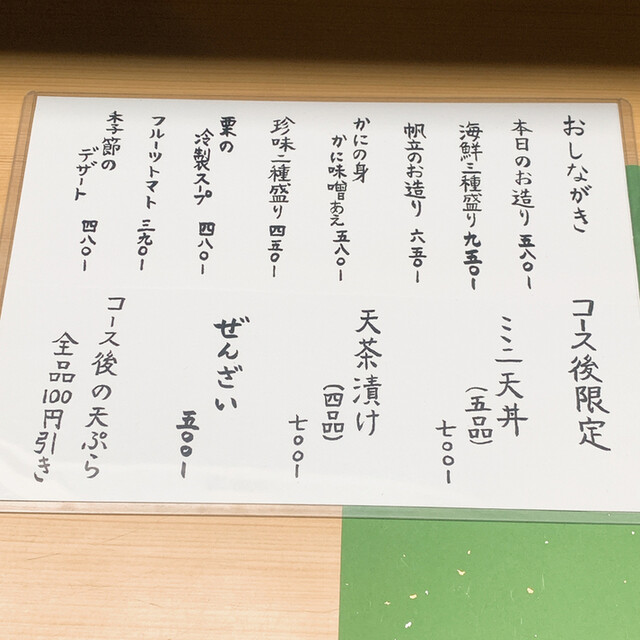 おしながき
本日のお造り 五八〇ー
海鮮三種盛り 九五〇ー
帆立のお造り 六五〇ー
かにの身
かに味噌あえ 五八〇ー
珍味二種盛り 四五〇ー
栗の
冷製スープ 四八〇ー
フルーツトマト 三九〇ー
季節の
デザート 四八〇ー
コース後限定
ミニ天丼
(五品)
七〇〇ー
天茶漬け
(四品)
七〇〇ー
ぜんざい
五〇〇ー
コース後の天ぷら
全品100円引き